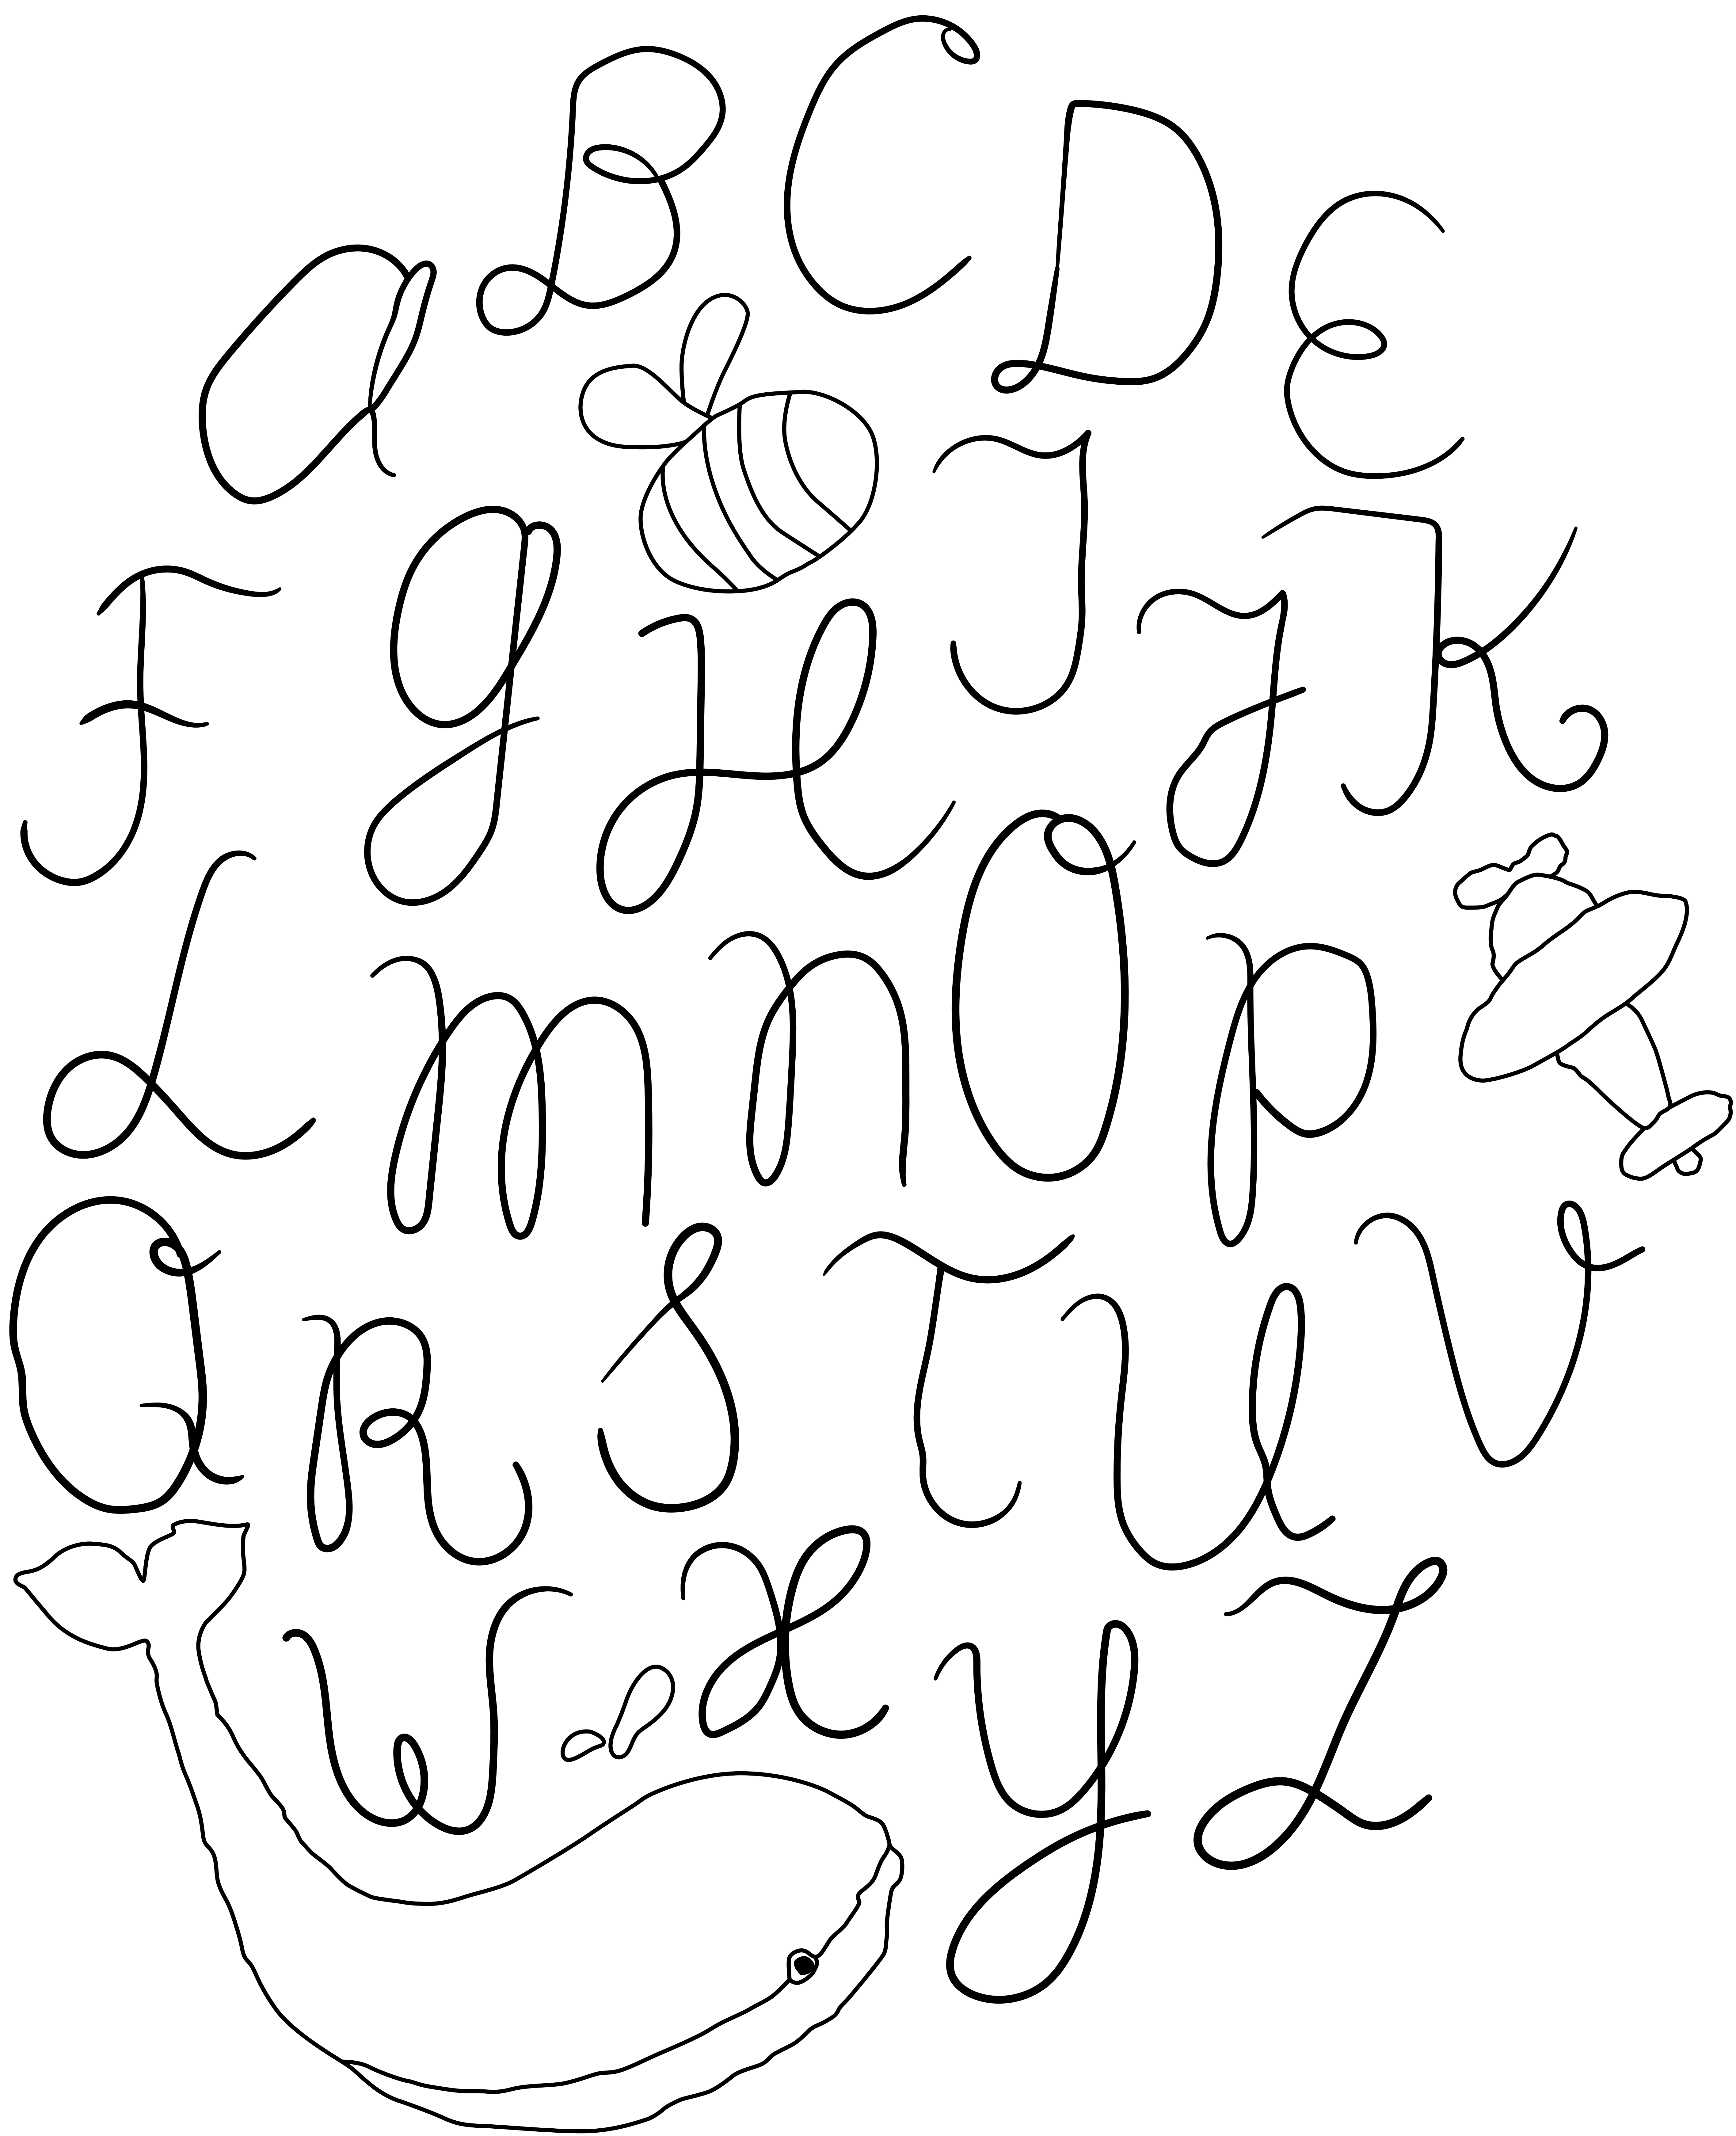 a B C D E
F g H I J K
L m n O p
Q R S T U V
W X Y Z